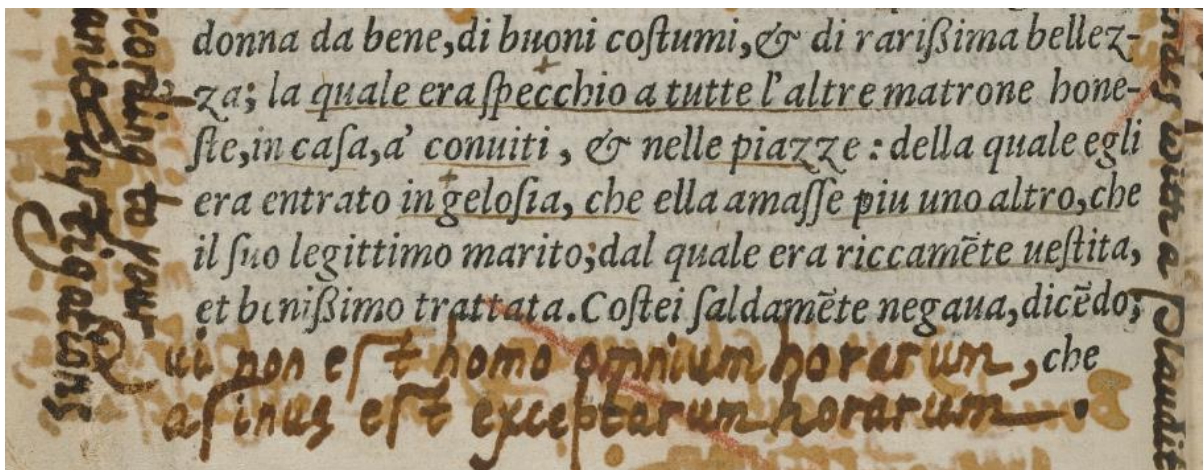 donna da bene, di buoni coſtumi, & di rariſſima bellez-
za; la quale era ſpecchio a tutte l'altre matrone hone-
ſte, in caſa, a' conuiti, & nelle piazze: della quale egli
era entrato in geloſia, che ella amaſſe piu uno altro, che
il ſuo legittimo marito; dal quale era riccamẽte ueſtita,
et beniſſimo trattata. Coſtei ſaldamẽte negaua, dicẽdo;
che
Qui non eſt homo omnium horarum,
aſinus eſt exceptarum horarum.
ecording to your
with a Plaudite